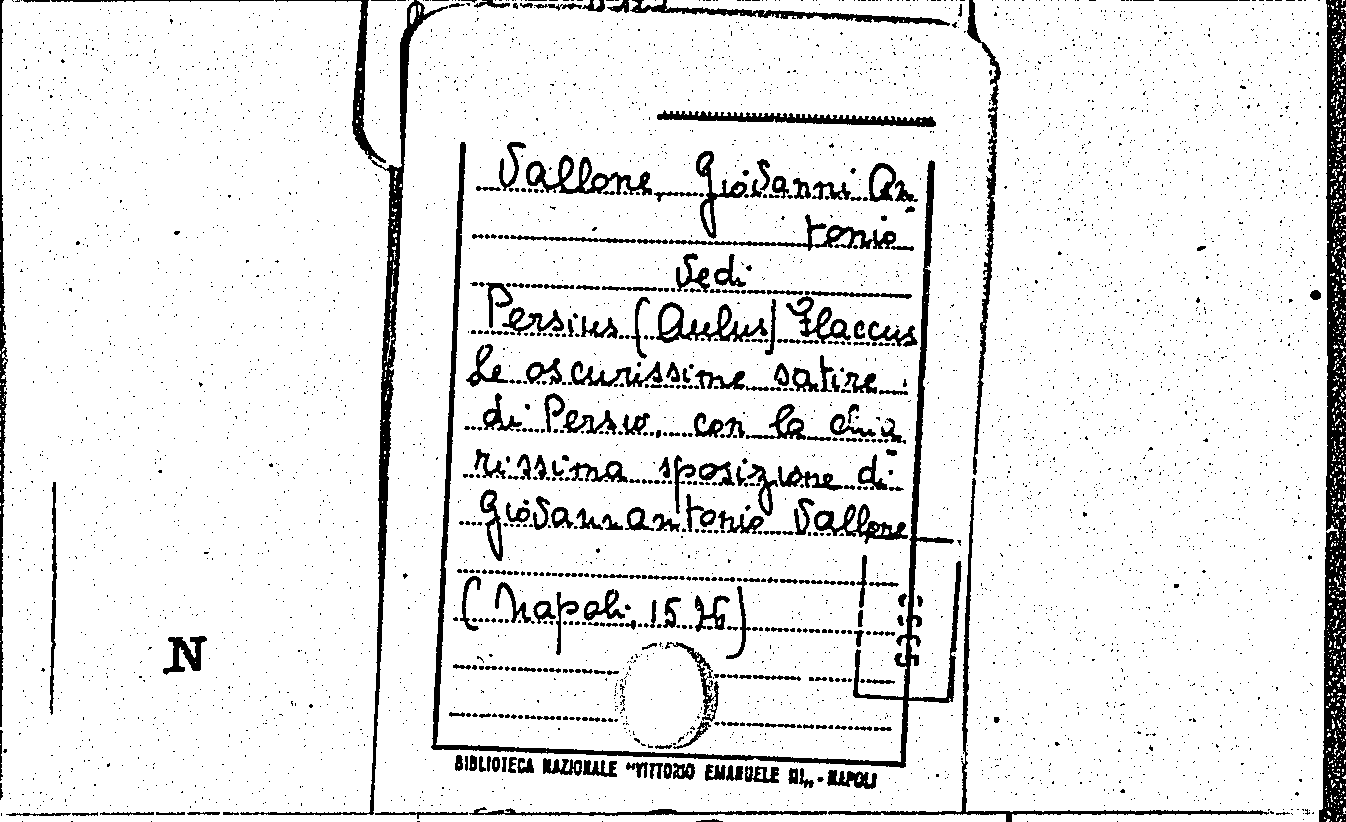 Vallone, Giovanni An-
tonio
Vedi
Persius (Aulus) Flaccus
Le oscurissime satire
di Persio, con la chia-
rissima sposizione di
Giovannantonio Vallone
(Napoli, 1576)
N
BIBLIOTECA NAZIONALE "VITTORIO EMANUELE III„ - NAPOLI